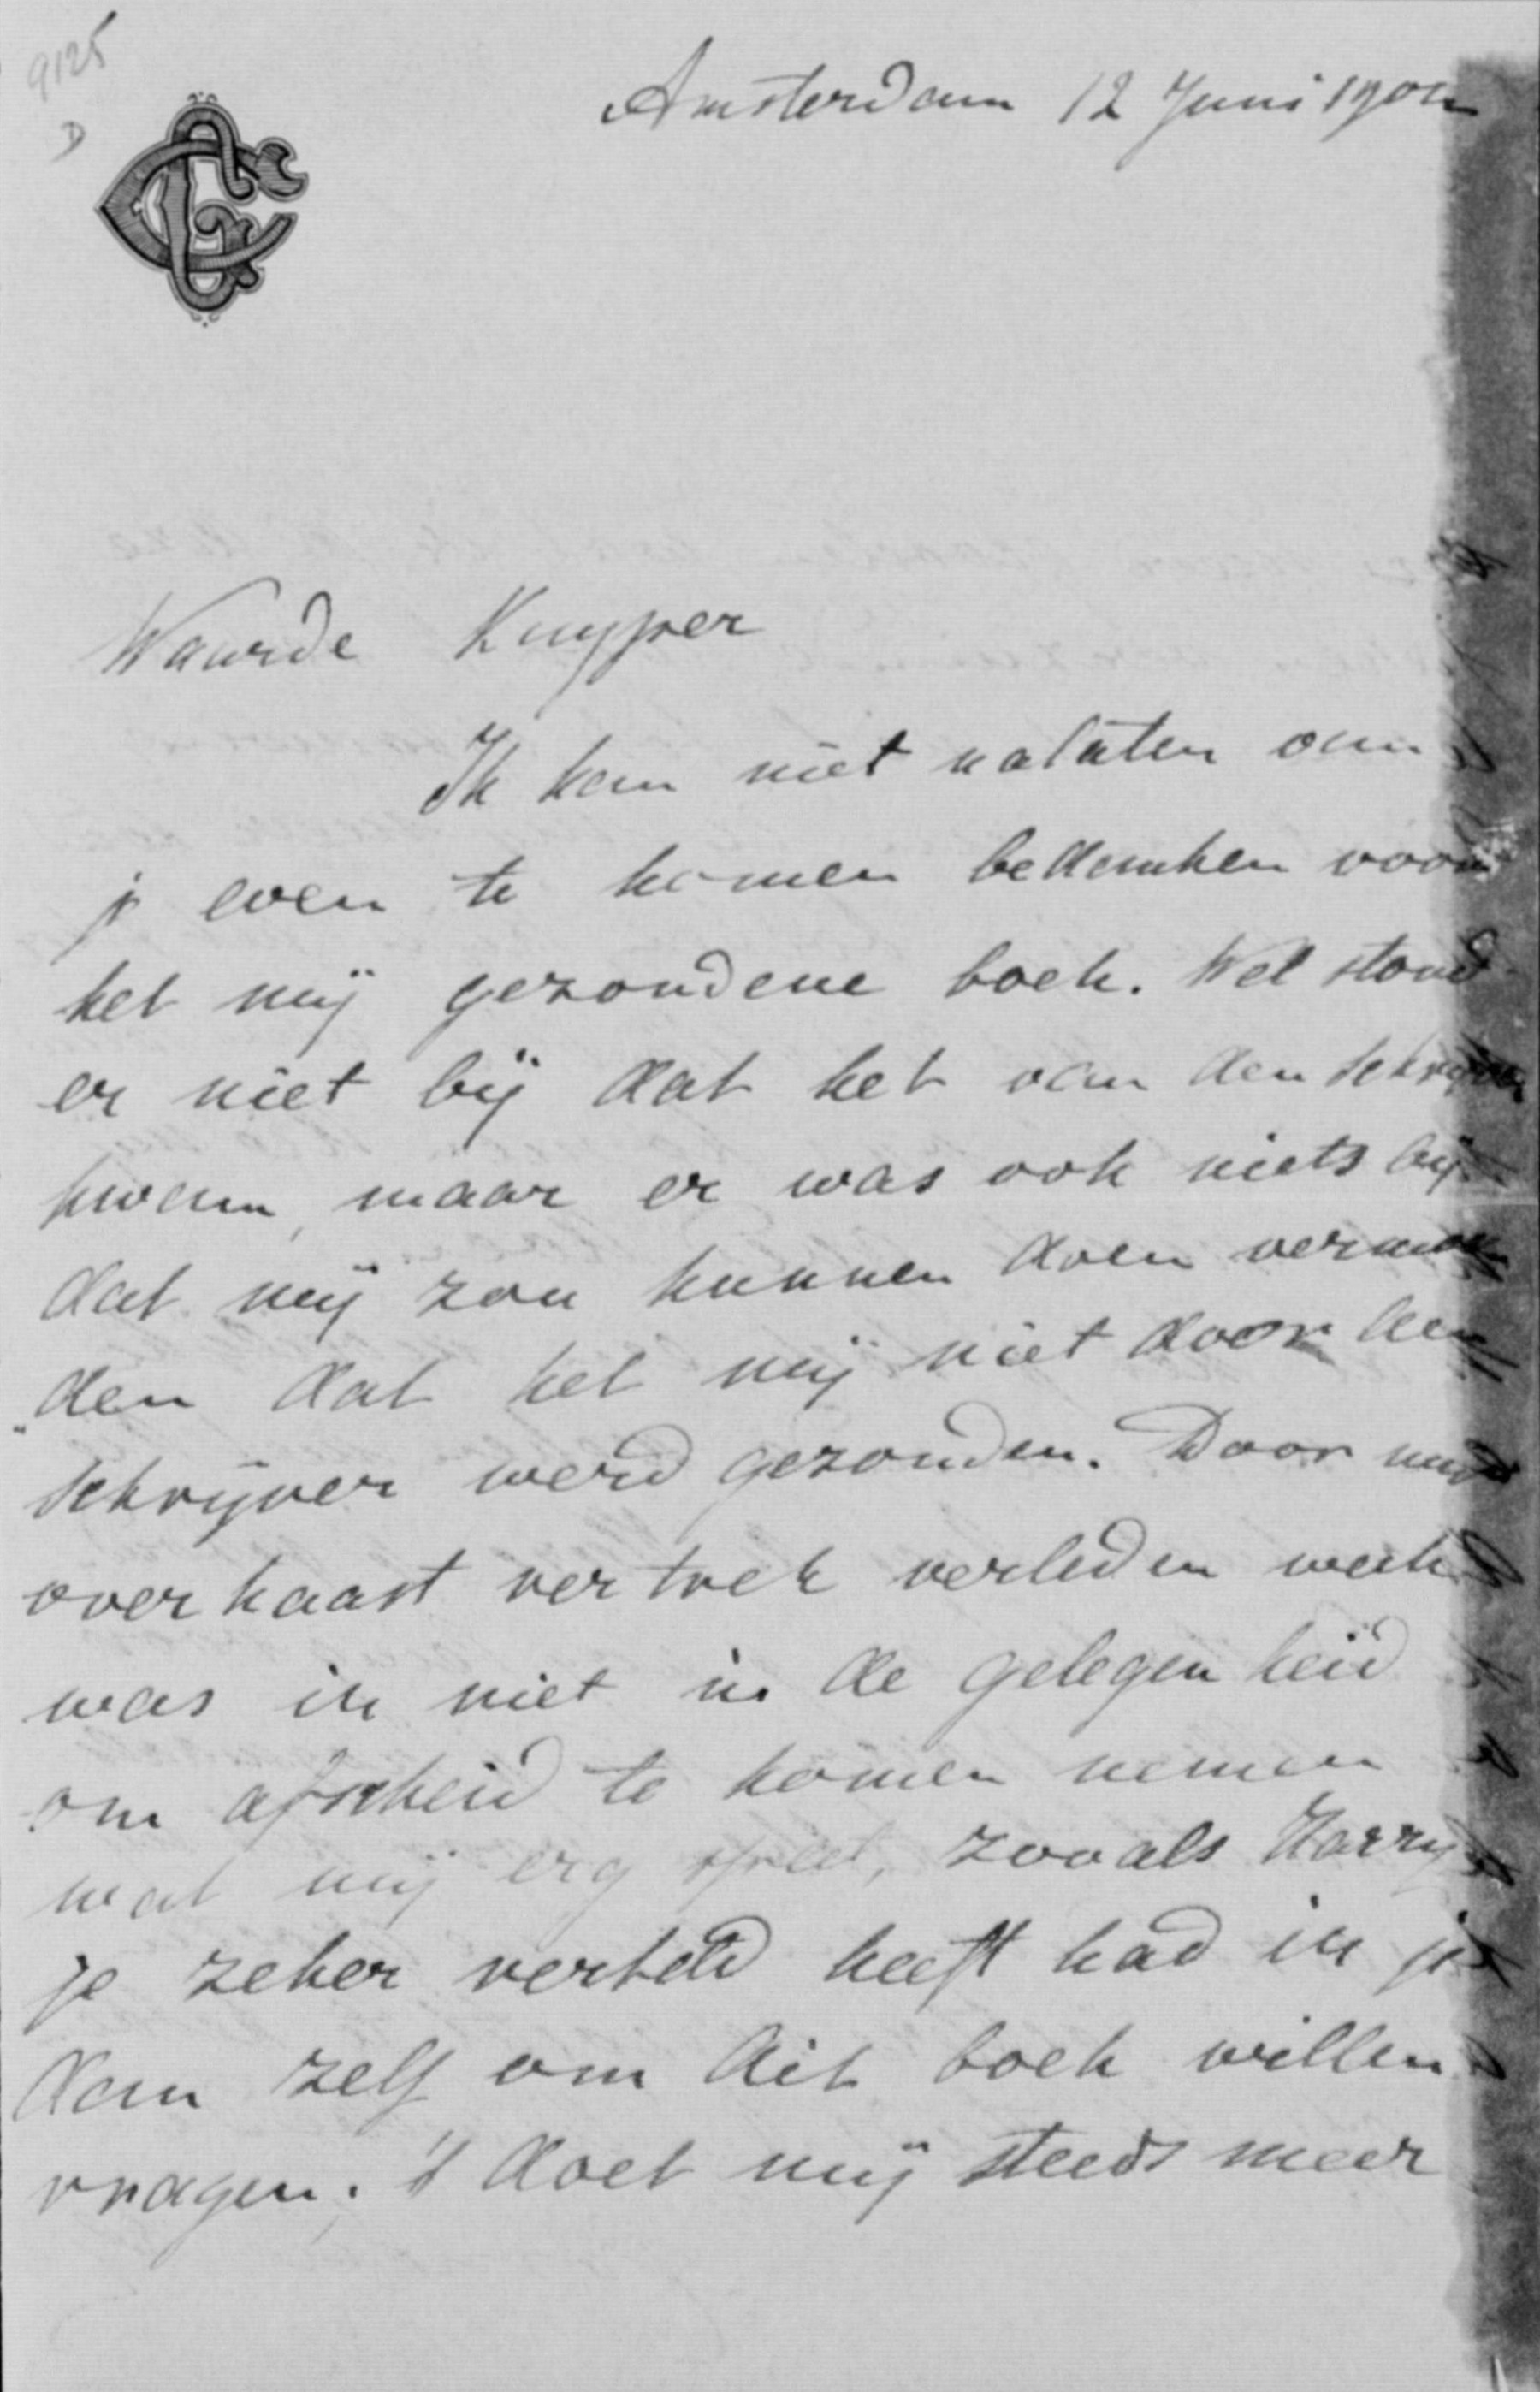 9125
D
Amsterdam 12 Juni 190
Waarde Kuyper
Ik kan niet nalaten om
je even te komen bedanken voor
het mij gezondene boek. Wel stond
er niet bij dat het van den schrijver
kwam, maar er was ook niets bij
dat mij zou kunnen doen vermoe
den dat het mij niet door den
schrijver werd gezonden. Door mijn
overhaast vertrek verleden week
was ik niet in de gelegenheid
om afscheid te komen nemen
wat mij erg speet, zooals Harry
je zeker verteld heeft had ik je
dan zelf om dit boek willen
vragen. 't doet mij steeds meer